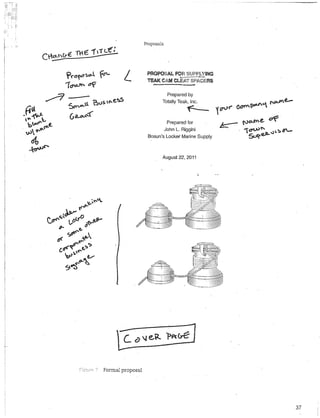 Proposals
CHANGE THE TITLE:
Proposal for
Town of
Small Business
Grant
fill
in the
blank
w/ name
of
town
PROPOSAL FOR SUPPLYING
TEAK CAM CLEAT SPACERS
Prepared by
Totally Teak, Inc.
your company name
Prepared for
John L. Riggini
Bosun's Locker Marine Supply
name of
Town
Supervisor
August 22, 2011
Consider making
a logo
or some other
corporate/
business
signage
COVER PAGE
Figure 7 Formal proposal
37